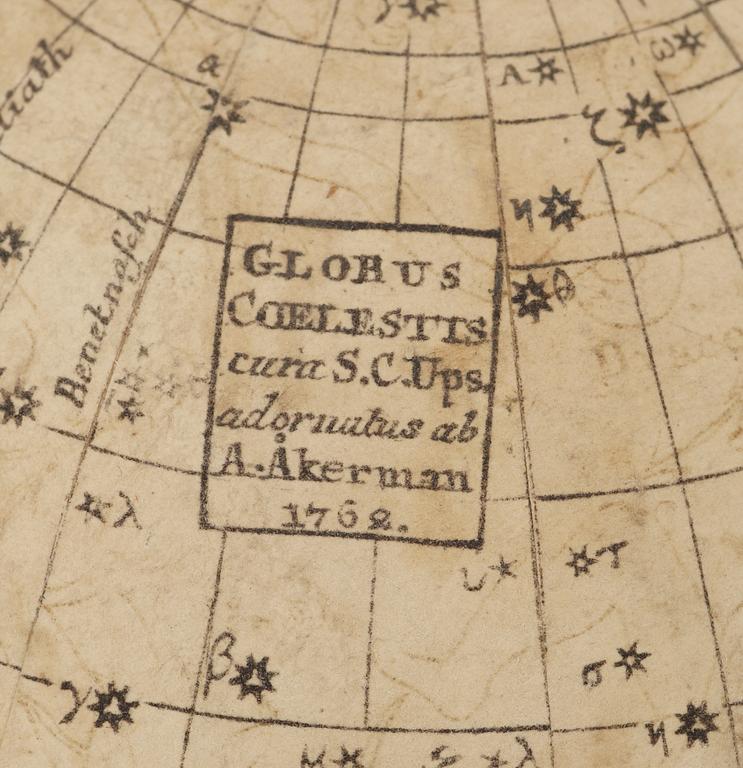 α
A
ω
ζ
η
θ
Benetnasch
GLOBUS
COELESTIS
cura S.C.Ups.
adornatus ab
A. Åkerman
1762.
λ
υ
τ
β
σ
γ
η
λ